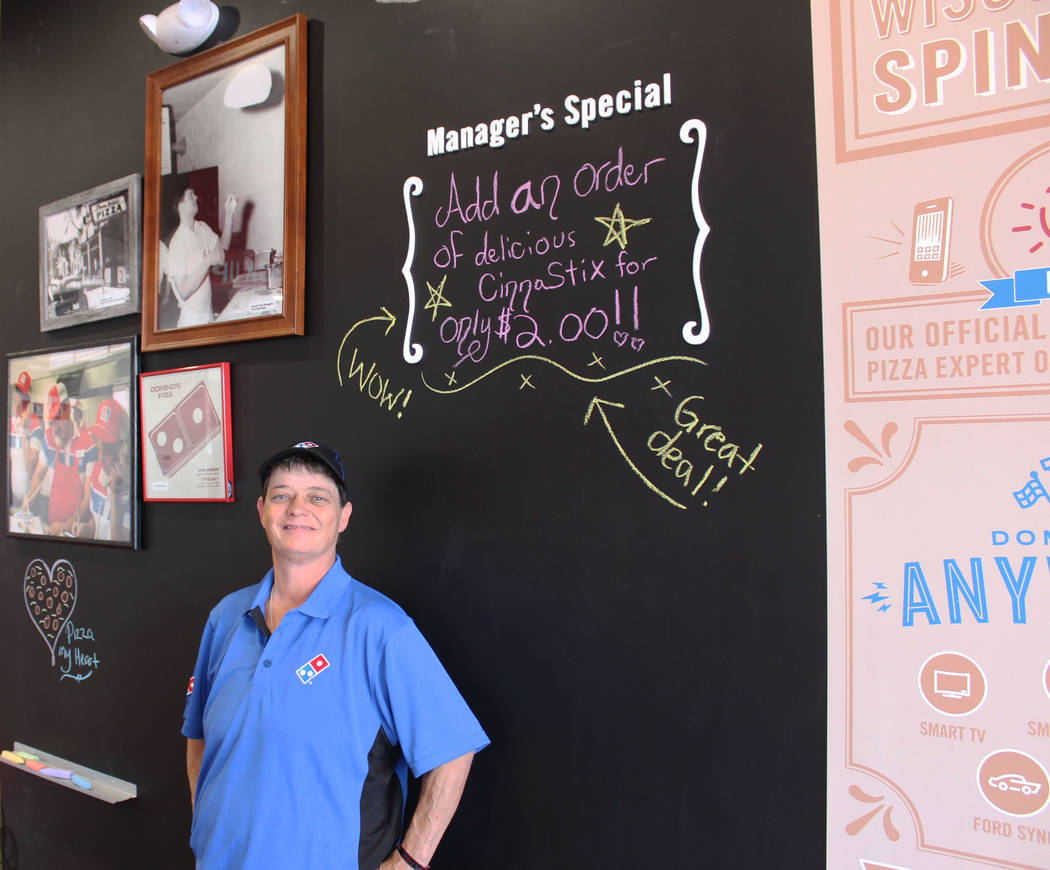 Manager's Special
Add an order
of delicious
CinnaStix for
only $2.00!!
WOW!
Great
deal!
PIZZA
DOMINO'S
PIZZA
Pizza
my Heart
SPIN
OUR OFFICIAL
PIZZA EXPERT O
DOM
ANY
SMART TV
SM
FORD SYN